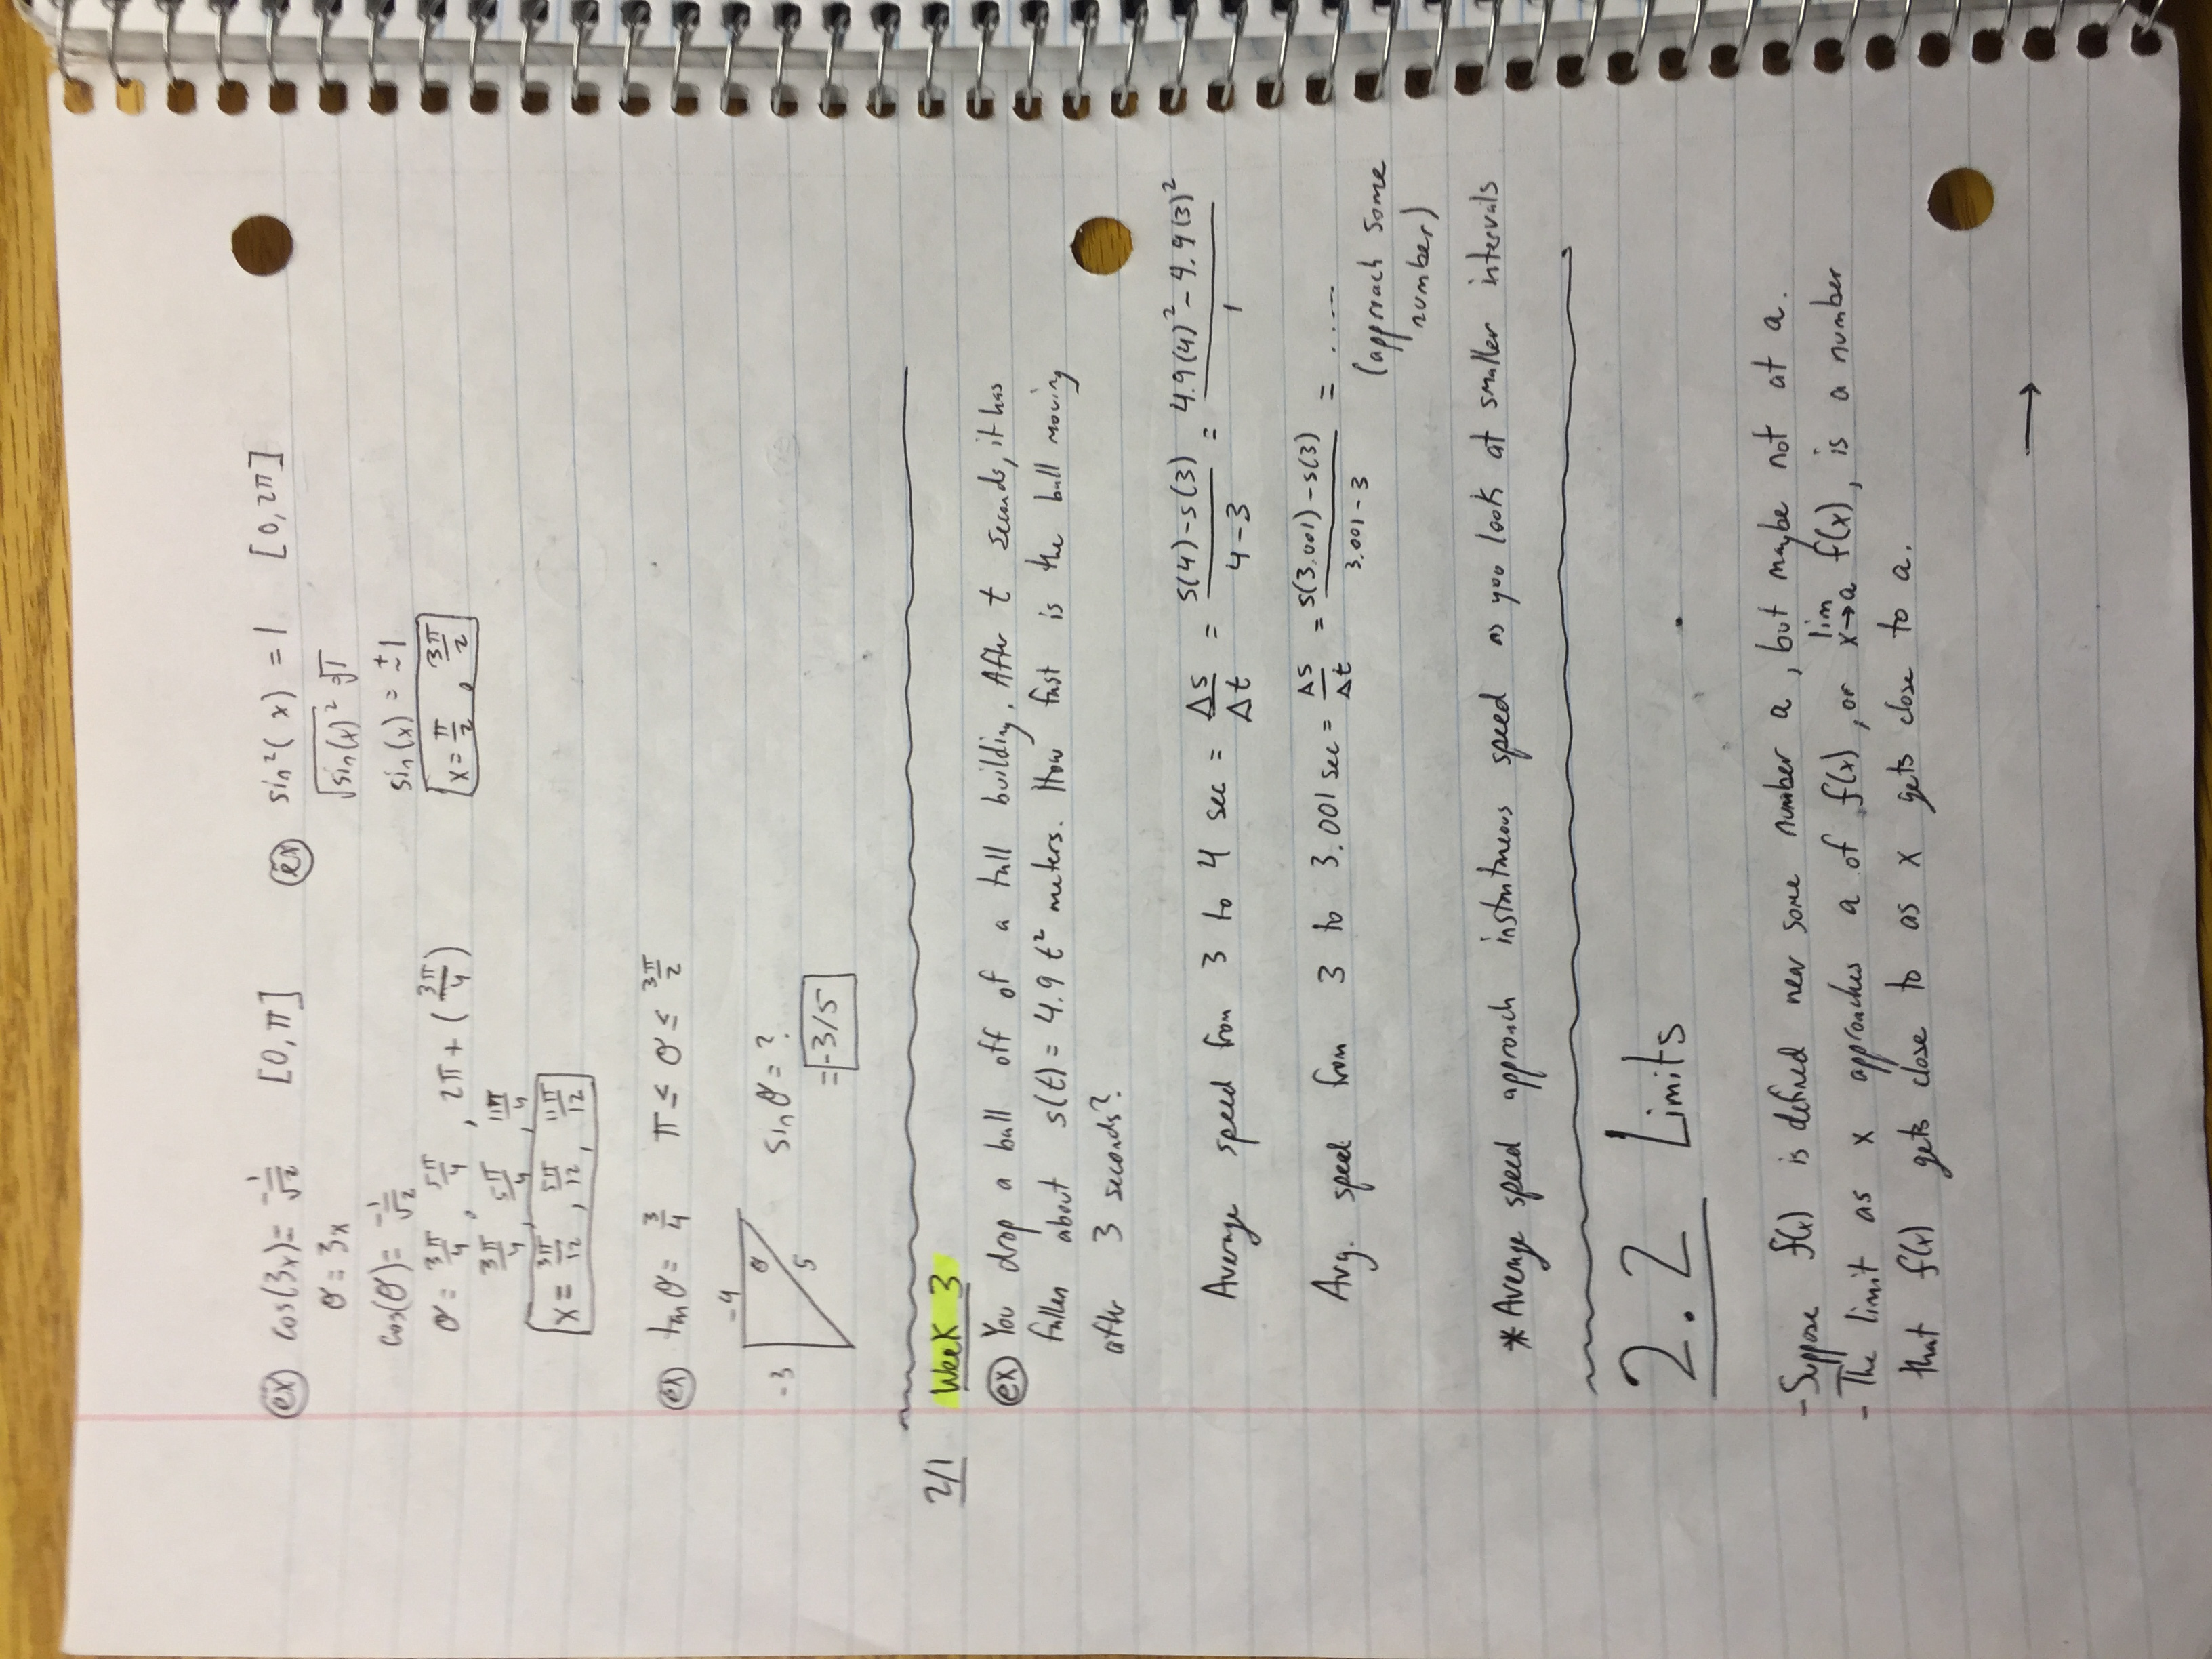 ex cos(3x) = -1/√2 [0, π]
θ = 3x
cos(θ) = -1/√2
θ = 3π/4, 5π/4, 2π + (3π/4)
3π/4, 5π/4, 11π/4
x = 3π/12, 5π/12, 11π/12
ex sin²(x) = 1 [0, 2π]
√sin(x)² √1
sin(x) = ±1
x = π/2, 3π/2
ex tan θ = 3/4 π ≤ θ ≤ 3π/2
-4
-3 θ 5
sin θ = ?
= -3/5
2/1 Week 3
ex You drop a ball off of a tall building. After t seconds, it has
fallen about s(t) = 4.9 t² meters. How fast is the ball moving
after 3 seconds?
Average speed from 3 to 4 sec = Δs/Δt = s(4)-s(3)/4-3 = 4.9(4)² - 4.9(3)²/1
Avg. speed from 3 to 3.001 sec = Δs/Δt = s(3.001)-s(3)/3.001-3 = .....
(approach some
number)
* Average speed approach instantaneous speed as you look at smaller intervals
2.2 Limits
- Suppose f(x) is defined near some number a, but maybe not at a.
- The limit as x approaches a of f(x), or lim x→a f(x), is a number
that f(x) gets close to as x gets close to a.
→